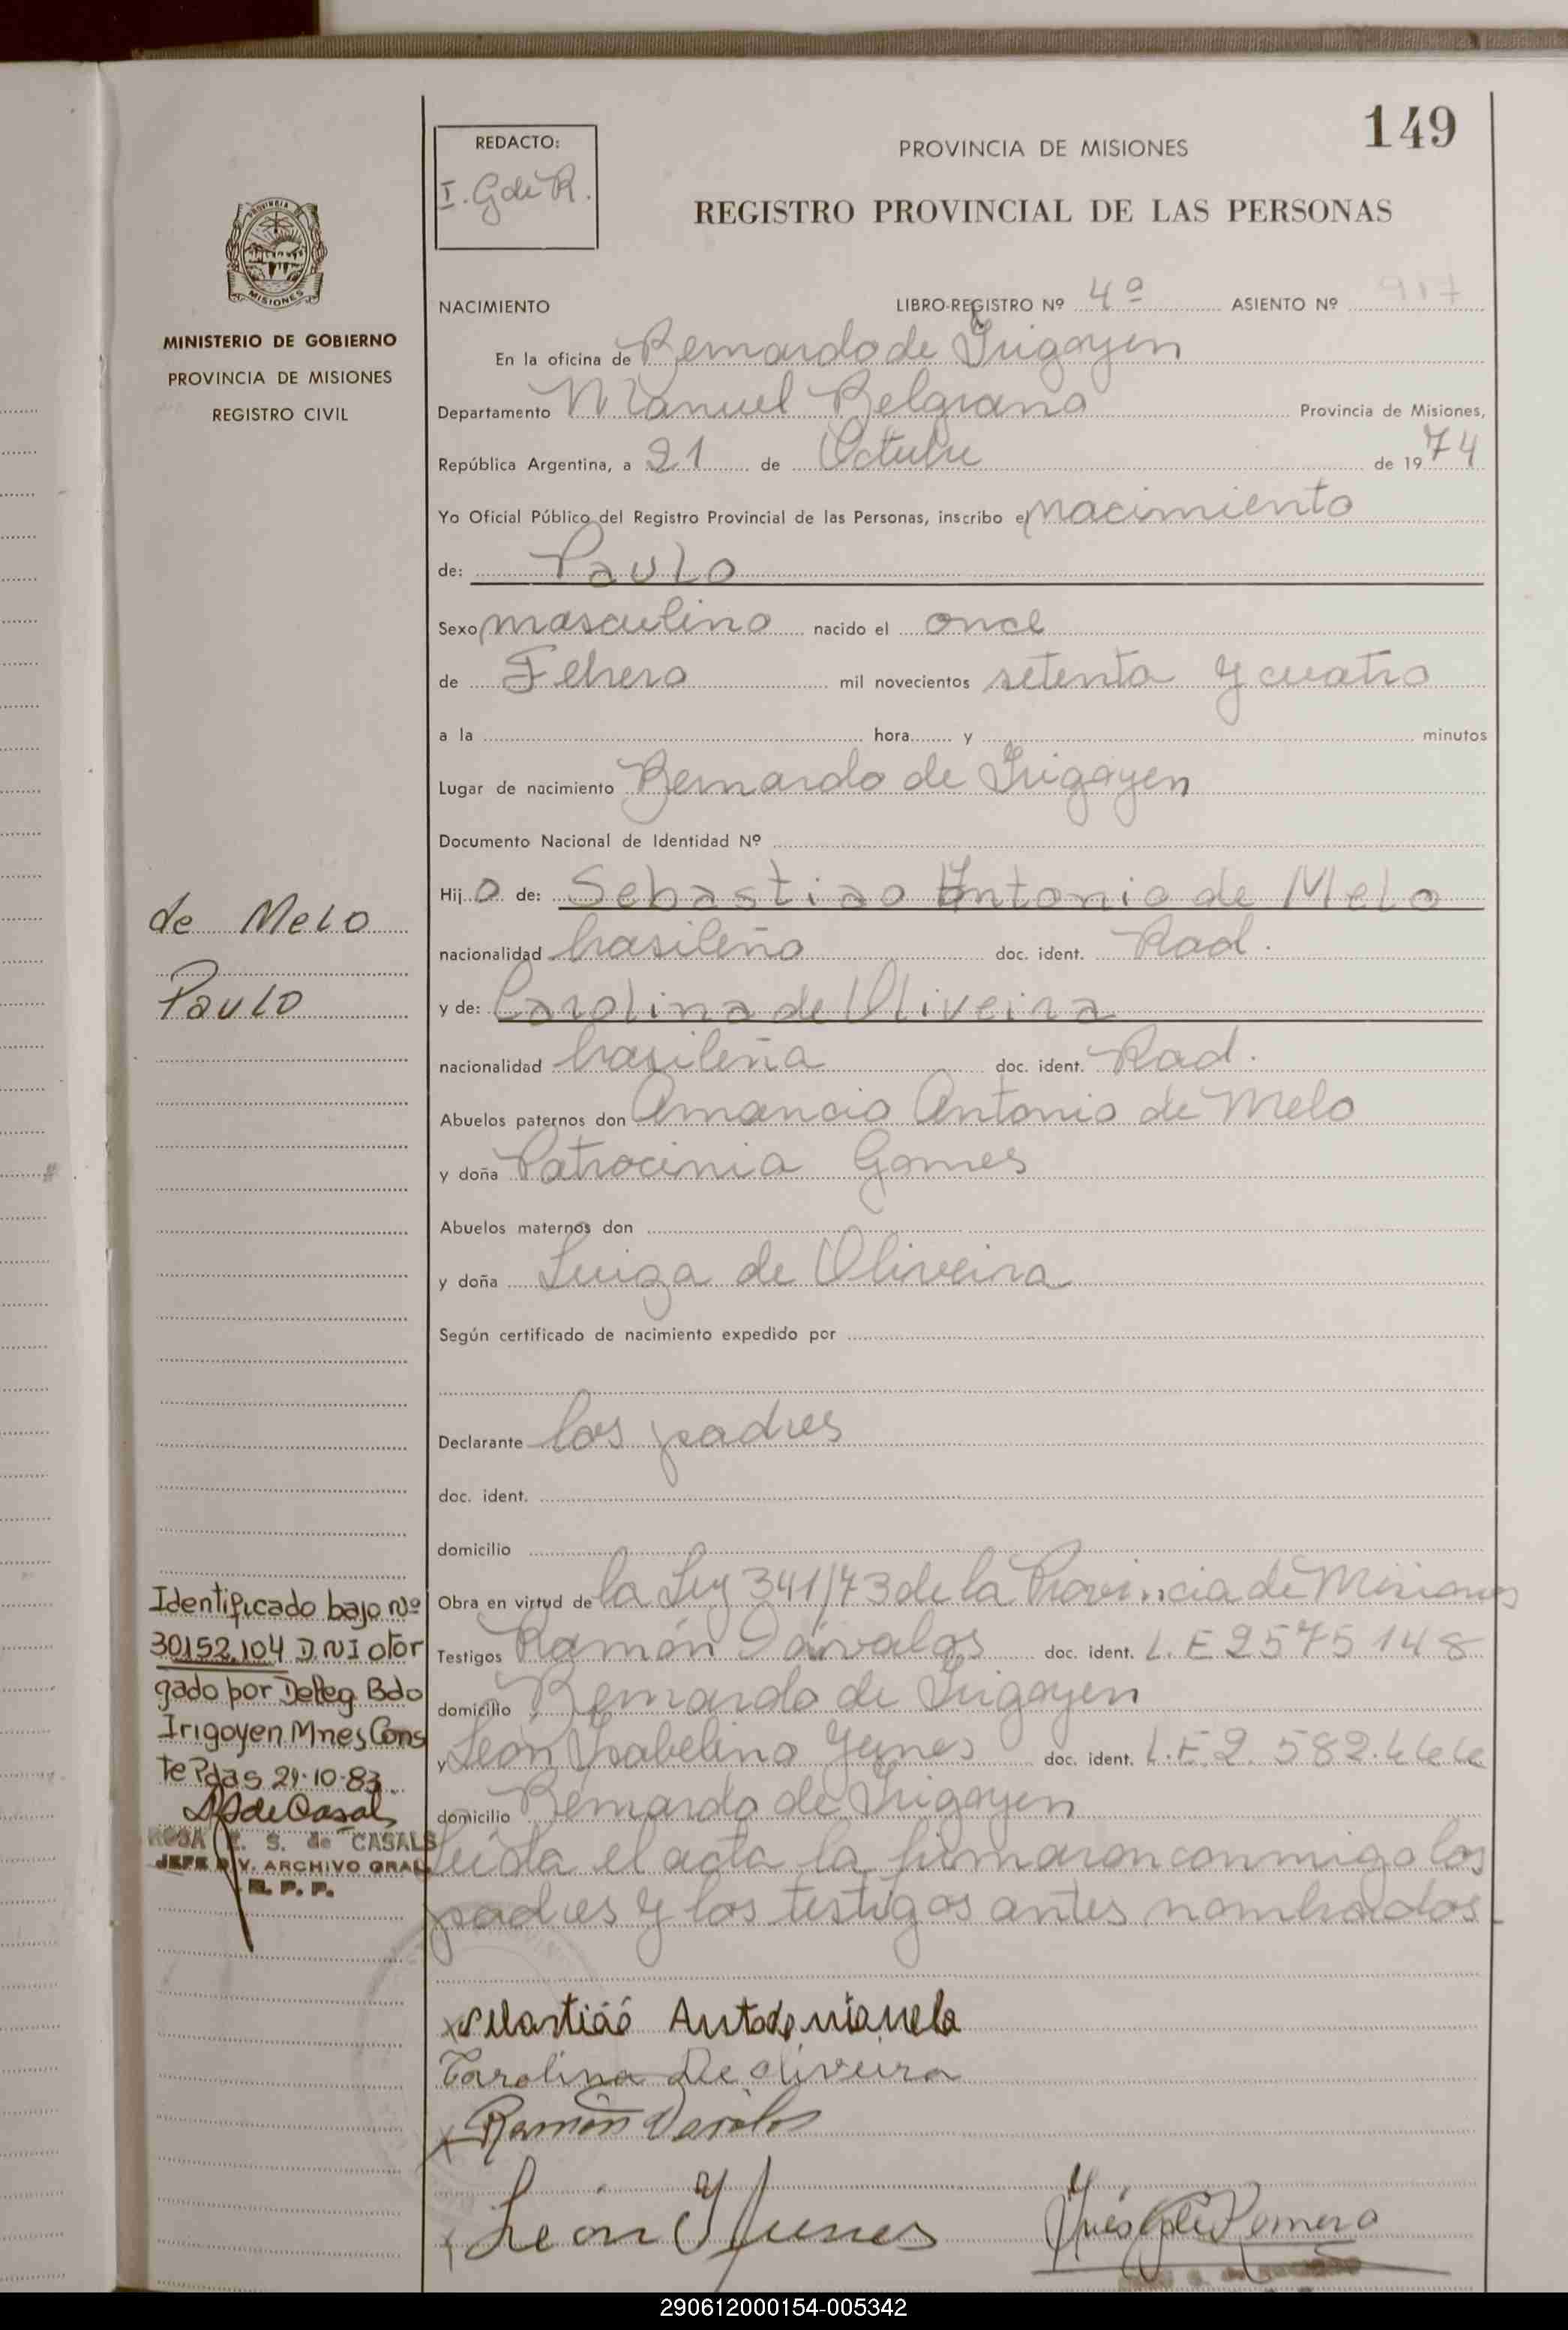 149
REDACTO:
I. G de R.
PROVINCIA DE MISIONES
REGISTRO PROVINCIAL DE LAS PERSONAS
MISIONES
MINISTERIO DE GOBIERNO
PROVINCIA DE MISIONES
REGISTRO CIVIL
NACIMIENTO LIBRO-REGISTRO Nº 4º ASIENTO Nº 917
En la oficina de Bernardo de Irigoyen
Departamento Manuel Belgrano Provincia de Misiones,
República Argentina, a 21 de Octubre de 1974
Yo Oficial Público del Registro Provincial de las Personas, inscribo el nacimiento
de: Paulo
Sexo masculino nacido el once
de Febrero mil novecientos setenta y cuatro
a la hora y minutos
Lugar de nacimiento Bernardo de Irigoyen
Documento Nacional de Identidad Nº
Hijo de: Sebastiao Antonio de Melo
nacionalidad brasileño doc. ident. Rad.
y de: Carolina de Oliveira
nacionalidad brasileña doc. ident. Rad.
Abuelos paternos don Amancio Antonio de Melo
y doña Patrocinia Gomes
Abuelos maternos don
y doña Luiza de Oliveira
Según certificado de nacimiento expedido por
Declarante los padres
doc. ident.
domicilio
Obra en virtud de la Ley 341/73 de la Provincia de Misiones
Testigos Ramón Dávalos doc. ident. L.E 2575148
domicilio Bernardo de Irigoyen
y León Isabelino Yunes doc. ident. L.E 2.582.
domicilio Bernardo de Irigoyen
Leída el acta la firmaron conmigo los
padres y los testigos antes nombrados.
de Melo
Paulo
Identificado bajo Nº
30152.104 D.N.I otor
gado por Deleg Bdo
Irigoyen Mnes Cons
te Pdas 21-10-83
de Casals
ROSA E. S. de CASALS
JEFE DIV. ARCHIVO GRAL
R. P. P.
Carolina De Oliveira
Ramón Davalos
León Y Yunes
Inés G de Romero
290612000154-005342